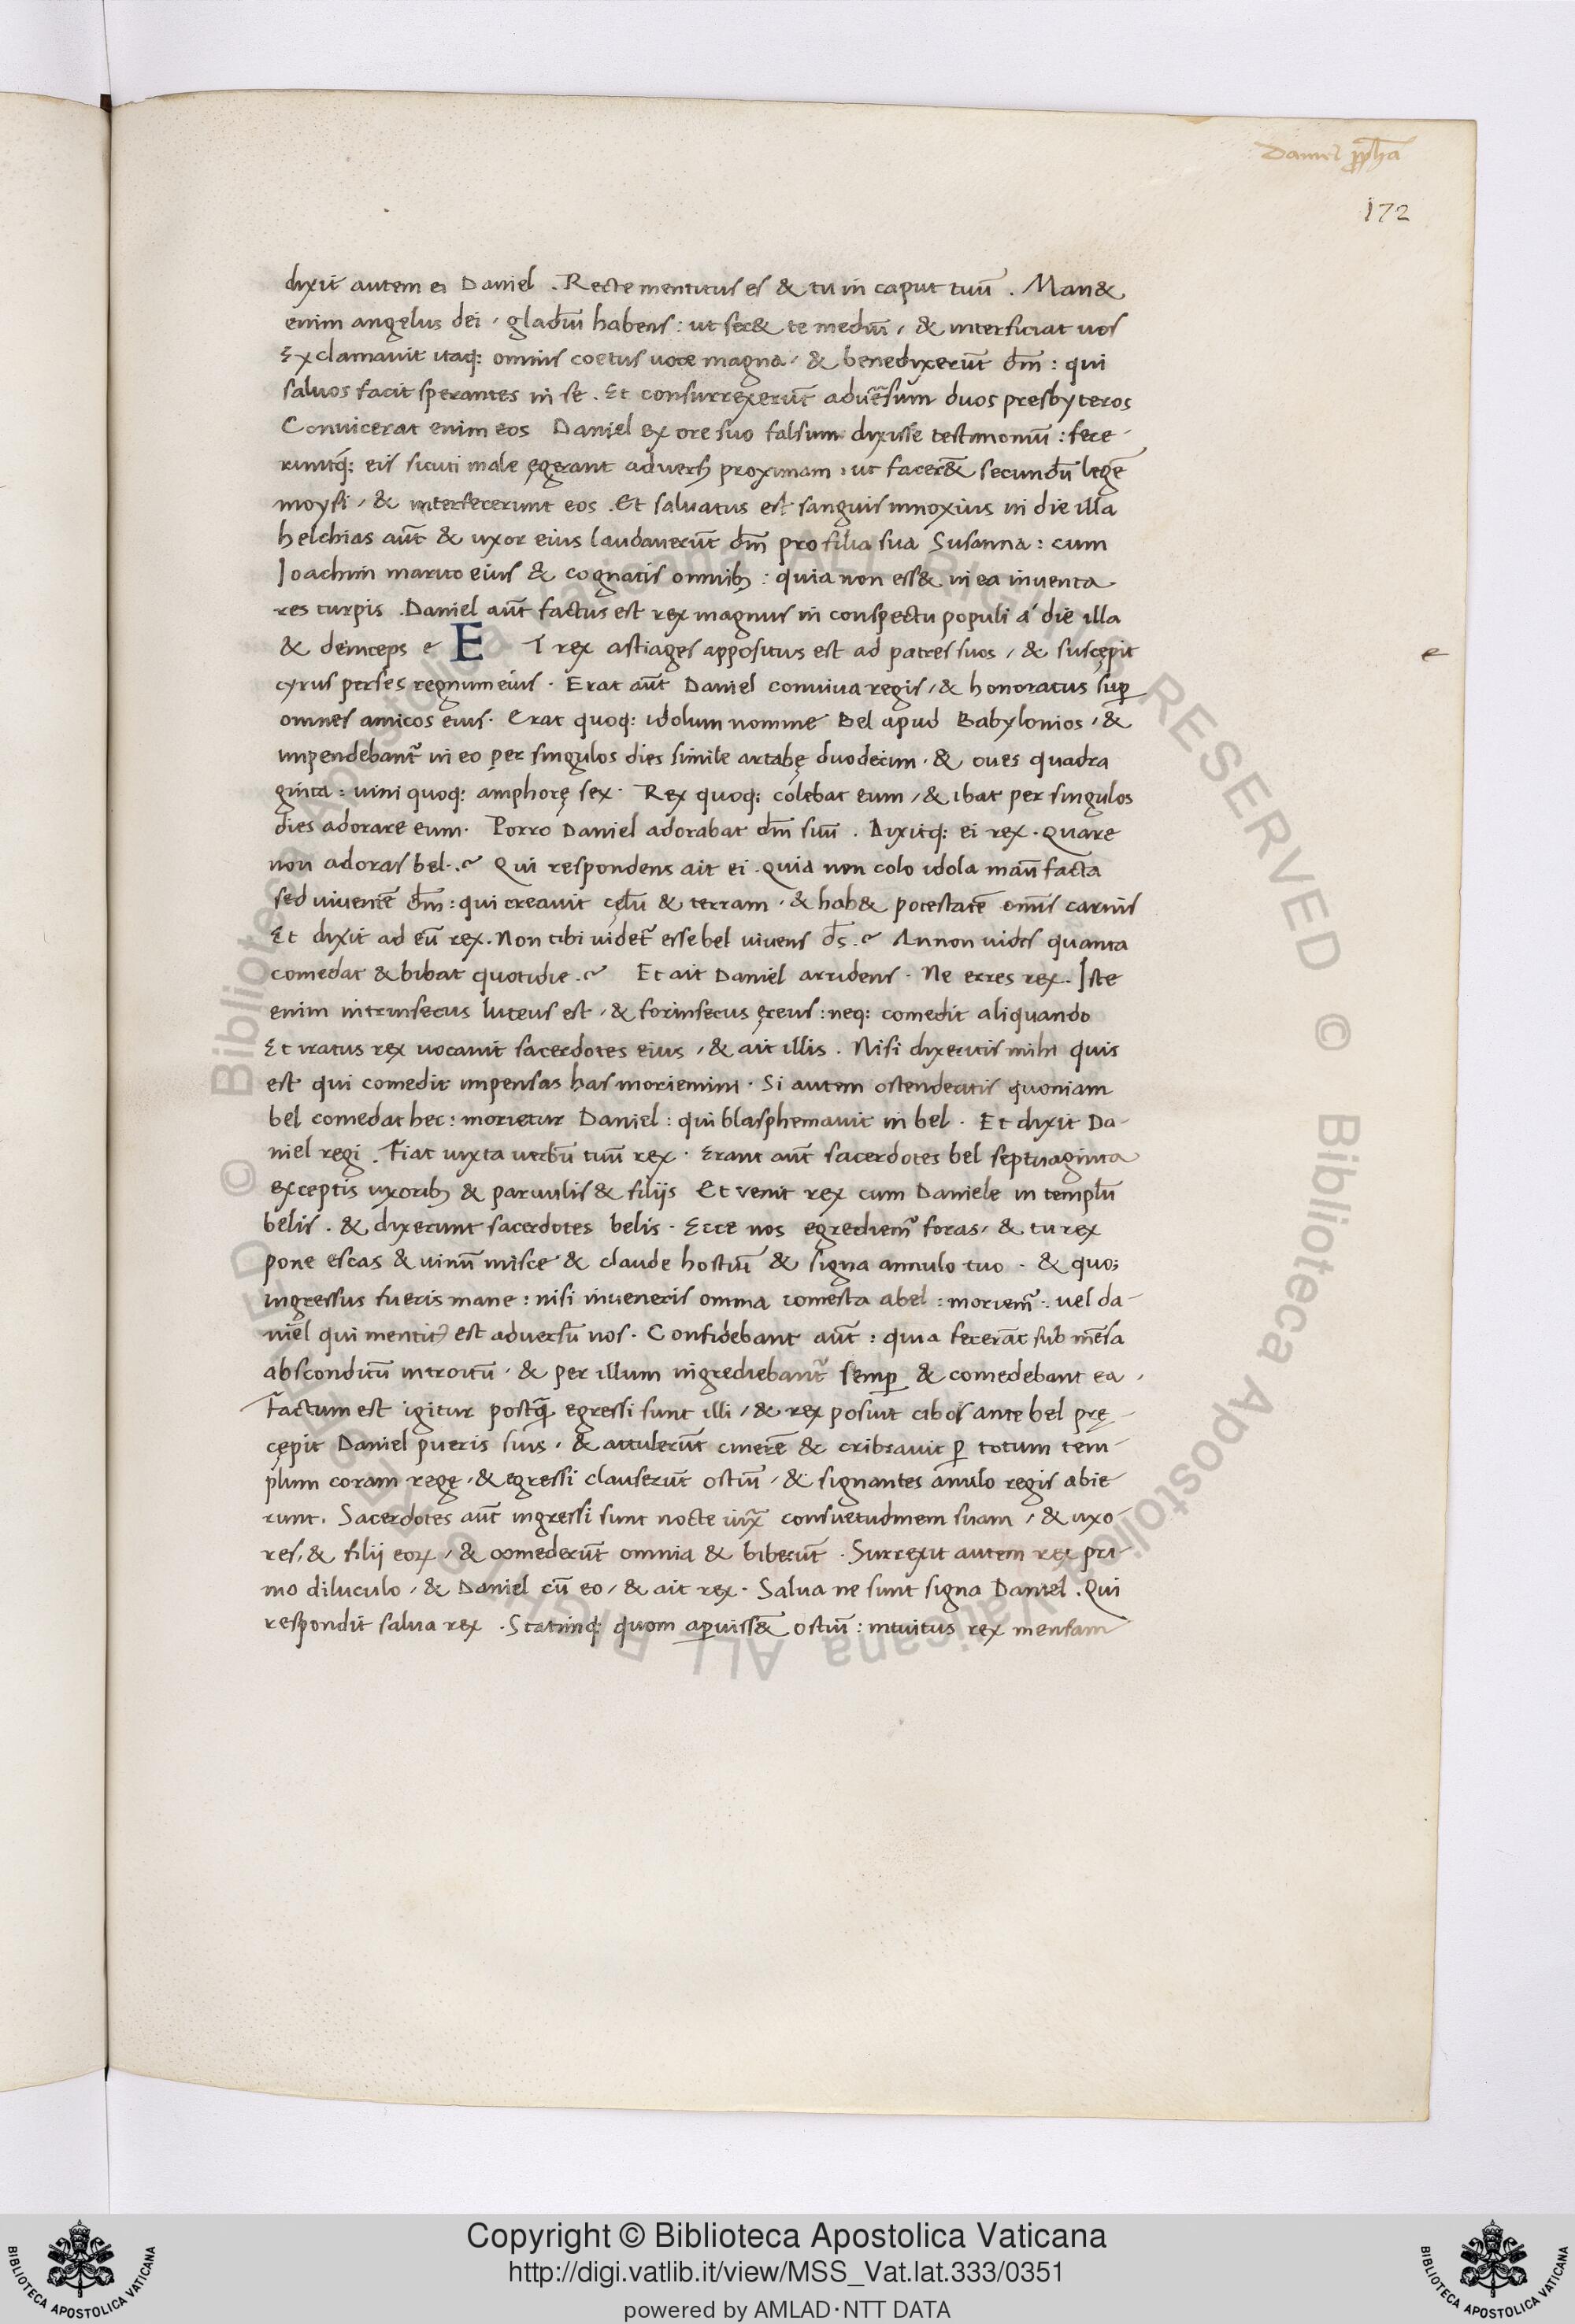 Daniel ꝓph̄a
172
dixit autem ei Daniel . Recte mentitus es & tu in caput tuū . Man&
enim angelus dei , gladiū habens : ut sec& te mediū , & interficiat uos
Exclamavit itaq: omnis coetus uoce magna , & benedixerūt dm̄ : qui
saluos facit sperantes in se . Et consurrexerūt aduēsum duos presbyteros
Conuicerat enim eos Daniel ex ore suo falsum dixisse testimoniū : fece-
runtq: eis sicuti male ęgerant adversꝫ proximam : ut facer& secundū legē
moysi , & interfecerunt eos . Et saluatus est sanguis innoxius in die illa
helchias aūt & uxor eius laudauerūt dm̄ pro filia sua Susanna : cum
Ioachim marito eius & cognatis omnibꝫ : quia non ess& in ea inuenta
res turpis . Daniel aūt factus est rex magnus in conspectu populi á die illa
& deinceps e E T rex astiages appositus est ad patres suos , & suscępit
e
cyrus perses regnum eius . Erat aūt Daniel conuiua regis , & honoratus suꝑ
omnes amicos eius . Erat quoq: idolum nomine Bel apud Babylonios , &
impendebant᷑ in eo per singulos dies simile artabę duodecim . & oues quadra
ginta : uini quoq: amphorę sex . Rex quoq: colebat eum , & ibat per singulos
dies adorare eum . Porro Daniel adorabat dm̄ suū . Dixitq: ei rex . Quare
non adoras bel .~ Qui respondens ait ei . quia non colo idola manū facta
sed uiuentē dm̄ : qui creauit cęlū & terram . & hab& potestatē omīs carnis
Et dixit ad eū rex . Non tibi uidet᷑ esse bel uiuens ds̄ .~ An non uides quanta
comedat & bibat quotidie .~ Et ait Daniel arridens . Ne erres rex . Iste
enim intrinsecus luteus est , & forinsecus ęreus : neq: comedit aliquando
Et iratus rex uocauit sacerdotes eius , & ait illis . Nisi dixeritis mihi quis
est qui comedit impensas has moriemini . Si autem ostenderitis quoniam
bel comedat hec : morietur Daniel : qui blasphemauit in bel . Et dixit Da-
niel regi . Fiat iuxta uerbū tuū rex . Erant aūt sacerdotes bel septuaginta
exceptis uxoribꝫ & paruulis & filijs Et venit rex cum Daniele in templū
belis . & dixerunt sacerdotes belis . Ecce nos egrediem᷒ foras , & tu rex
pone escas & uinū misce & claude hostiū & signa annulo tuo . & quo;
ingressus fueris mane : nisi inueneris omnia comesta abel : moriem᷒ : uel da-
niel qui mentit᷒ est aduersū nos . Confidebant aūt : quia fecerāt sub mēsa
absconditū introitū . & per illum ingrediebant᷑ semꝑ & comedebant ea ,
Factum est igitur postq̄ egressi sunt illi , & rex posuit cibos ante bel prę-
cępit Daniel pueris suis , & attulerūt cinerē & cribrauit ꝑ totum tem-
plum coram rege , & egressi clauserūt ostiū , & signantes anulo regis abie
runt . Sacerdotes aūt ingressi sunt nocte iuxᷓ consuetudinem suam , & uxo
res , & filij eoꝝ , & comederūt omnia & biberūt . Surrexit autem rex pri-
mo diluculo , & Daniel cū eo , & ait rex . Salua ne sunt signa Daniel . Qui
respondit salua rex . Statimq: quom aperuiss& ostiū : intuitus rex mensam
© Biblioteca Apostolica Vaticana ALL RIGHTS RESERVED © Biblioteca Apostolica Vaticana ALL RIGHTS RESERVED
Copyright © Biblioteca Apostolica Vaticana
http://digi.vatlib.it/view/MSS_Vat.lat.333/0351
powered by AMLAD·NTT DATA
BIBLIOTECA APOSTOLICA VATICANA
BIBLIOTECA APOSTOLICA VATICANA